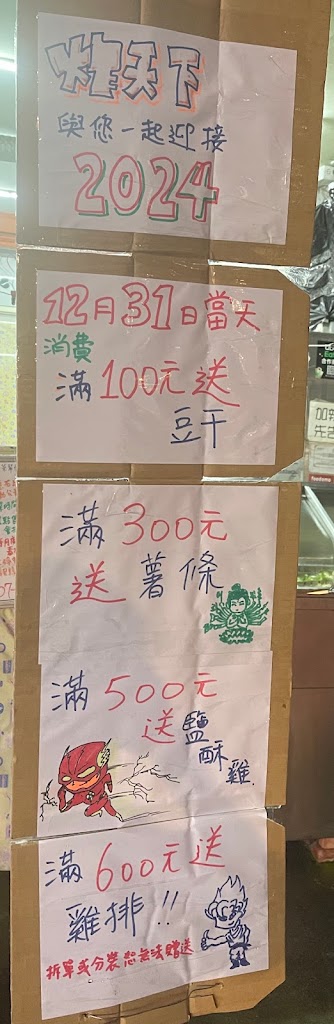 炸天下
與您一起迎接
2024
12月31日當天
消費
滿100元送
豆干
滿300元
送薯條
滿500元
送鹽
酥
雞.
滿600元送
雞排!!
拆單或分裝恕無法贈送